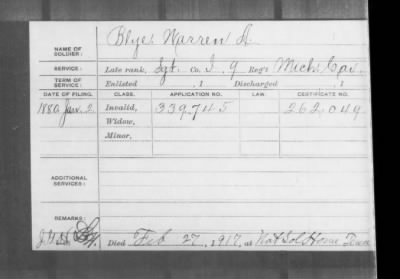 NAME OF SOLDIER: Blye, Warren A.
SERVICE: Late rank, Sgt. Co. I, 9 Reg't Mich. Cav.
TERM OF SERVICE: Enlisted , 1 Discharged , 1
DATE OF FILING. CLASS. APPLICATION NO. LAW. CERTIFICATE NO.
1880 Jan. 2. Invalid, 339745 262.049
Widow,
Minor,
ADDITIONAL SERVICES:
REMARKS:
Died Feb 27, 1917, at Nat Sol Home